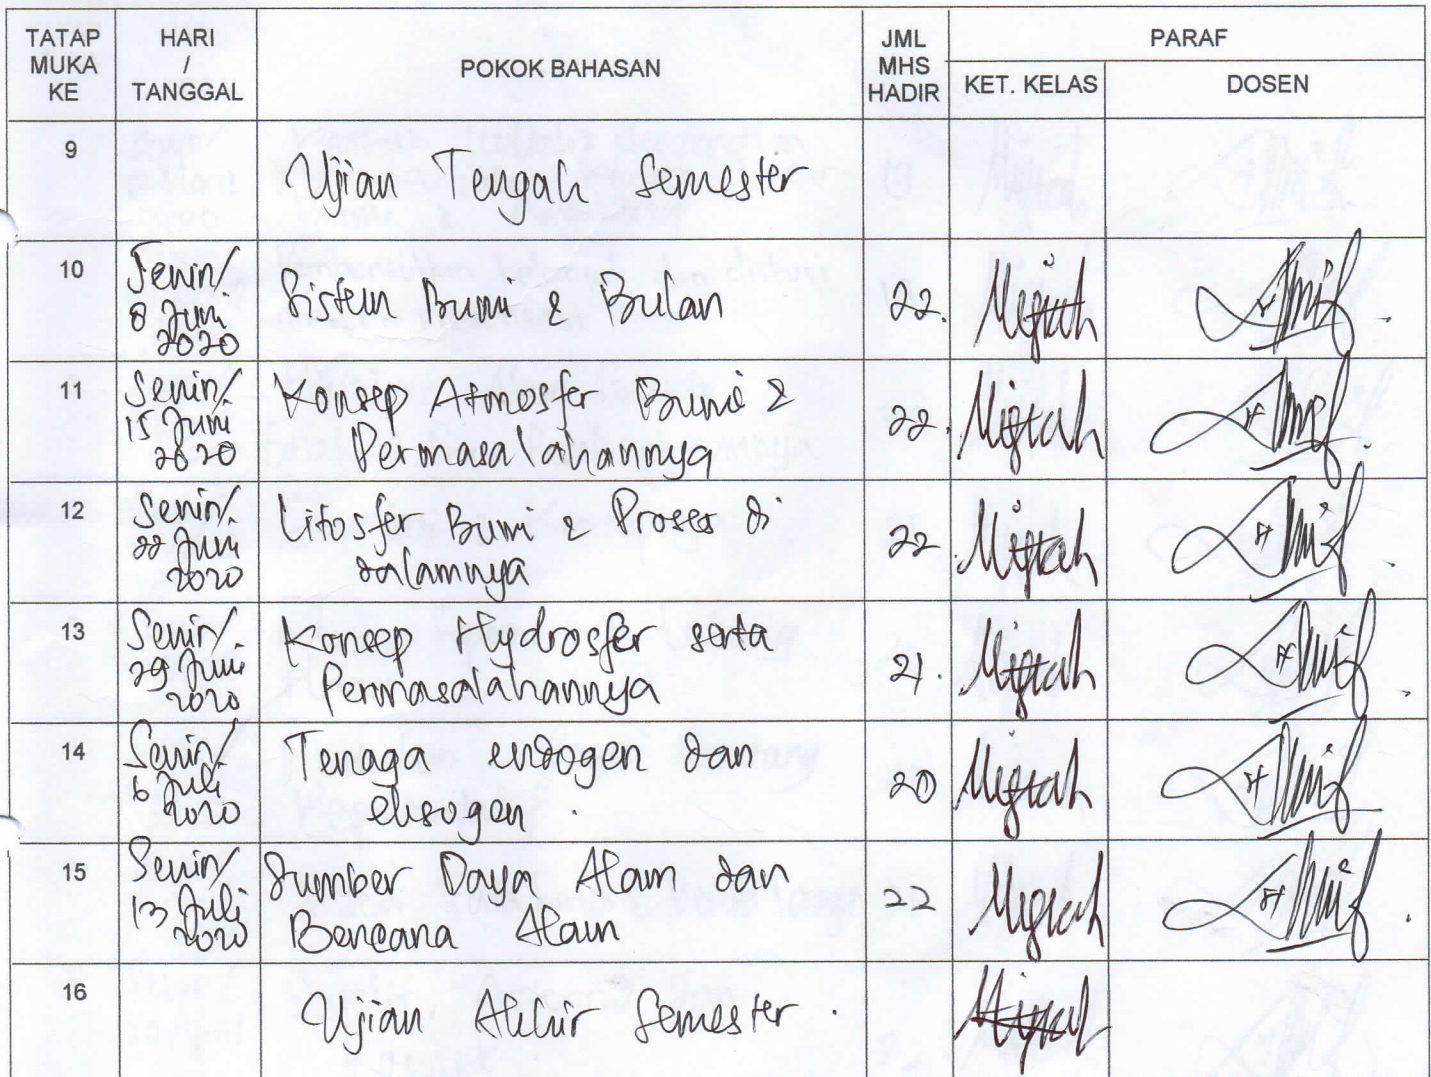 TATAP MUKA KE
HARI / TANGGAL
POKOK BAHASAN
JML MHS HADIR
PARAF
KET. KELAS
DOSEN
9
Ujian Tengah Semester
10
Senin/
8 Juni
2020
Sistem Bumi & Bulan
22.
Miftah
11
Senin/
15 Juni
2020
Konsep Atmosfer Bumi &
Permasalahannya
22.
Miftah
12
Senin/
22 Juni
2020
Litosfer Bumi & Proses di
dalamnya
22
Miftah
13
Senin/
29 Juni
2020
Konsep Hydrosfer serta
Permasalahannya
21.
Miftah
14
Senin/
6 Juli
2020
Tenaga endogen dan
eksogen.
20
Miftah
15
Senin/
13 Juli
2020
Sumber Daya Alam dan
Bencana Alam
22
Miftah
16
Ujian Akhir Semester.
Miftah